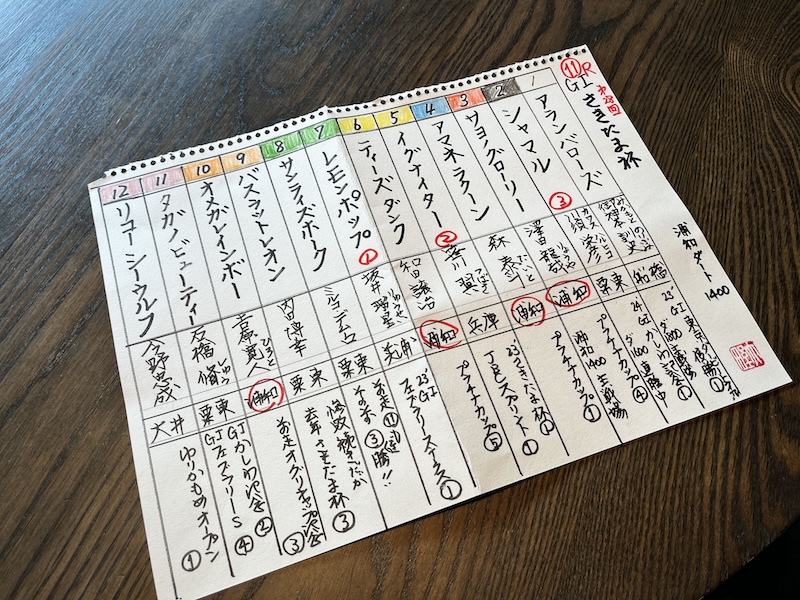 ⑪R
第28回
GⅠ さきたま杯
浦和ダート1400
1
アランバローズ
船橋
2
シャマル
③
川須栄彦
栗東
24' GⅠ かしわ記念①
ダ1600 重馬場
3
サヨノグローリー
澤田龍哉
浦和
プラチナカップ④
4
アマネラクーン
森泰斗
浦和
プラチナカップ①
浦和1400
5
イグナイター
②
笹川翼
兵庫
23' さきたま杯①
JBCスプリント①
6
ティーズダンク
和田譲治
浦和
プラチナカップ⑤
7
レモンポップ
①
坂井瑠星
美浦
23' GⅠ
フェブラリーステークス①
8
サンライズホーク
ミルコデムーロ
栗東
去年さきたま杯③
9
バスラットレオン
内田博幸
栗東
10
オメガレインボー
吉原寛人
浦和
オグリキャップ記念③
11
タガノビューティー
石橋脩
栗東
GⅠかしわ記念②
GⅠフェブラリーS④
12
リコーシーウルフ
今野忠成
大井
ゆりかもめオープン①